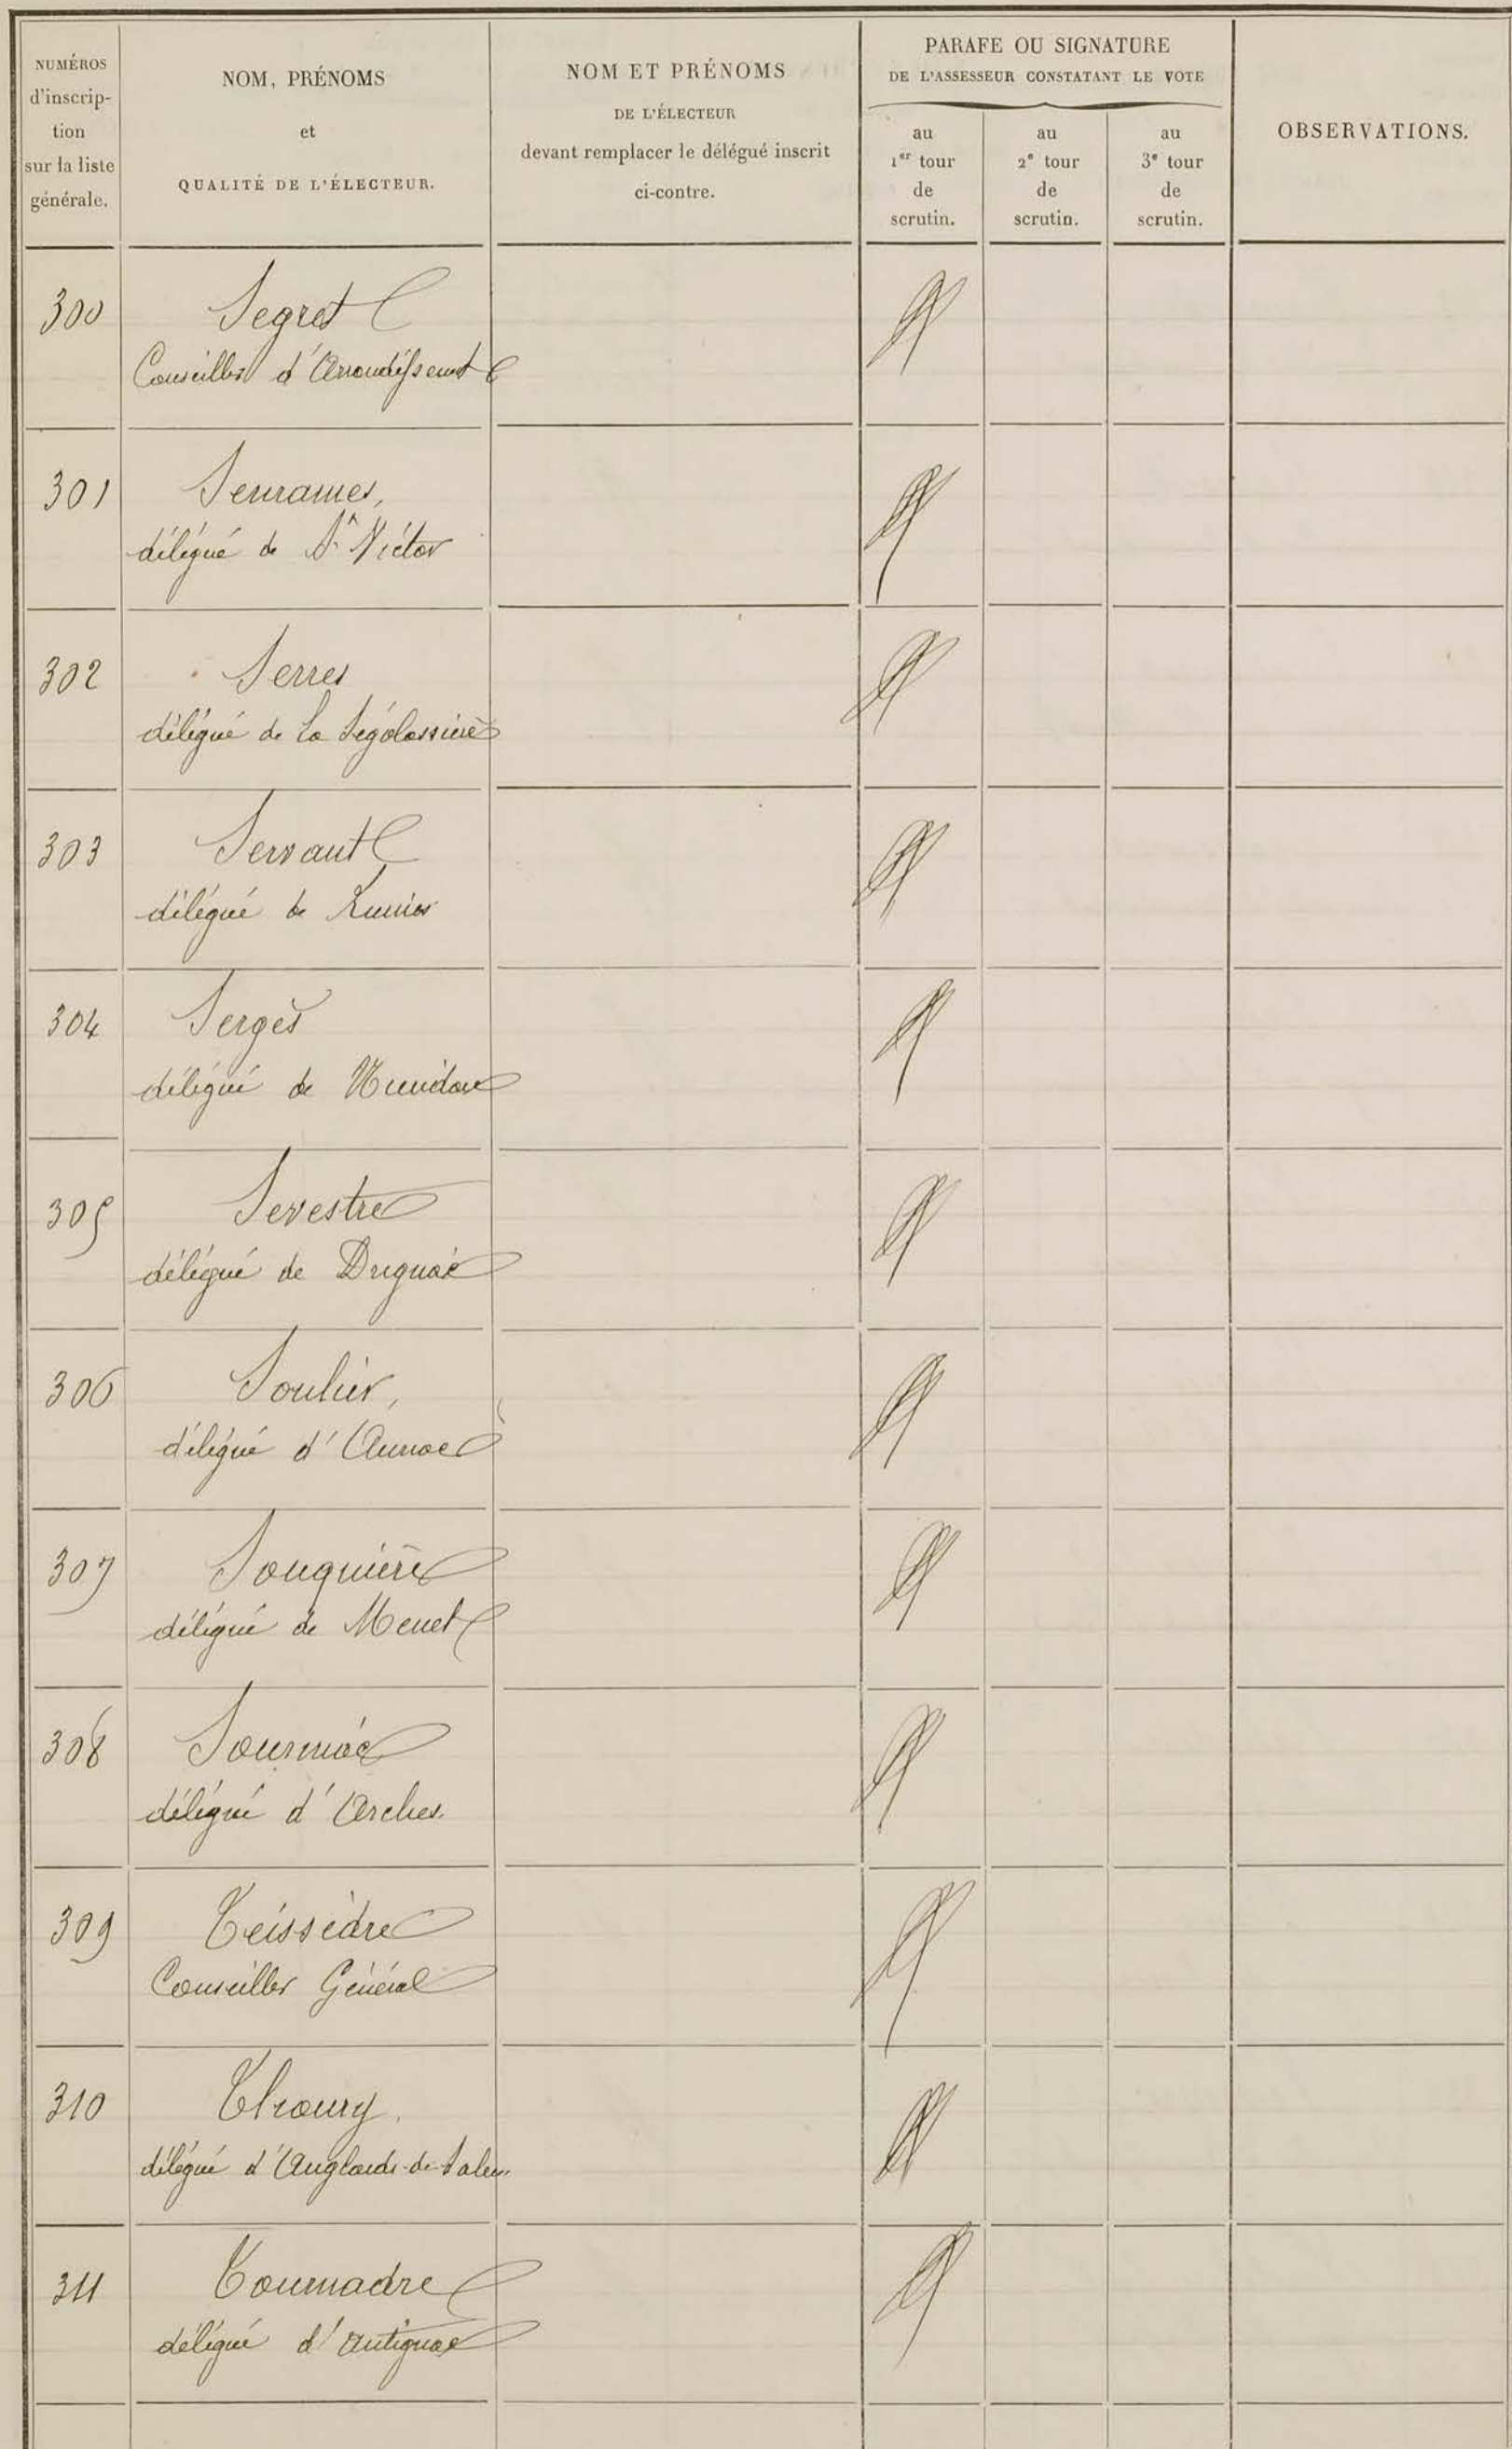 NUMÉROS
d'inscrip-
tion
sur la liste
générale.
NOM, PRÉNOMS
et
QUALITÉ DE L'ÉLECTEUR.
NOM ET PRÉNOMS
DE L'ÉLECTEUR
devant remplacer le délégué inscrit
ci-contre.
PARAFE OU SIGNATURE
DE L'ASSESSEUR CONSTATANT LE VOTE
au
1er tour
de
scrutin.
au
2e tour
de
scrutin.
au
3e tour
de
scrutin.
OBSERVATIONS.
300 Segret
Conseiller d'Arrondissement
301
délégué de St Victor
302 Serres
délégué de La Ségalassière
303 Servant
délégué de
304 Serges
délégué de
305 Sevestre
délégué de Drignac
306 Soulier,
délégué d'Auriac
307 Souquière
délégué de Menet
308 Sourniac
délégué d'Arches
309 Teissèdre
Conseiller Général
310 Thoury,
délégué d'Anglards-de-Salers
311 Tournadre
délégué d'Antignac